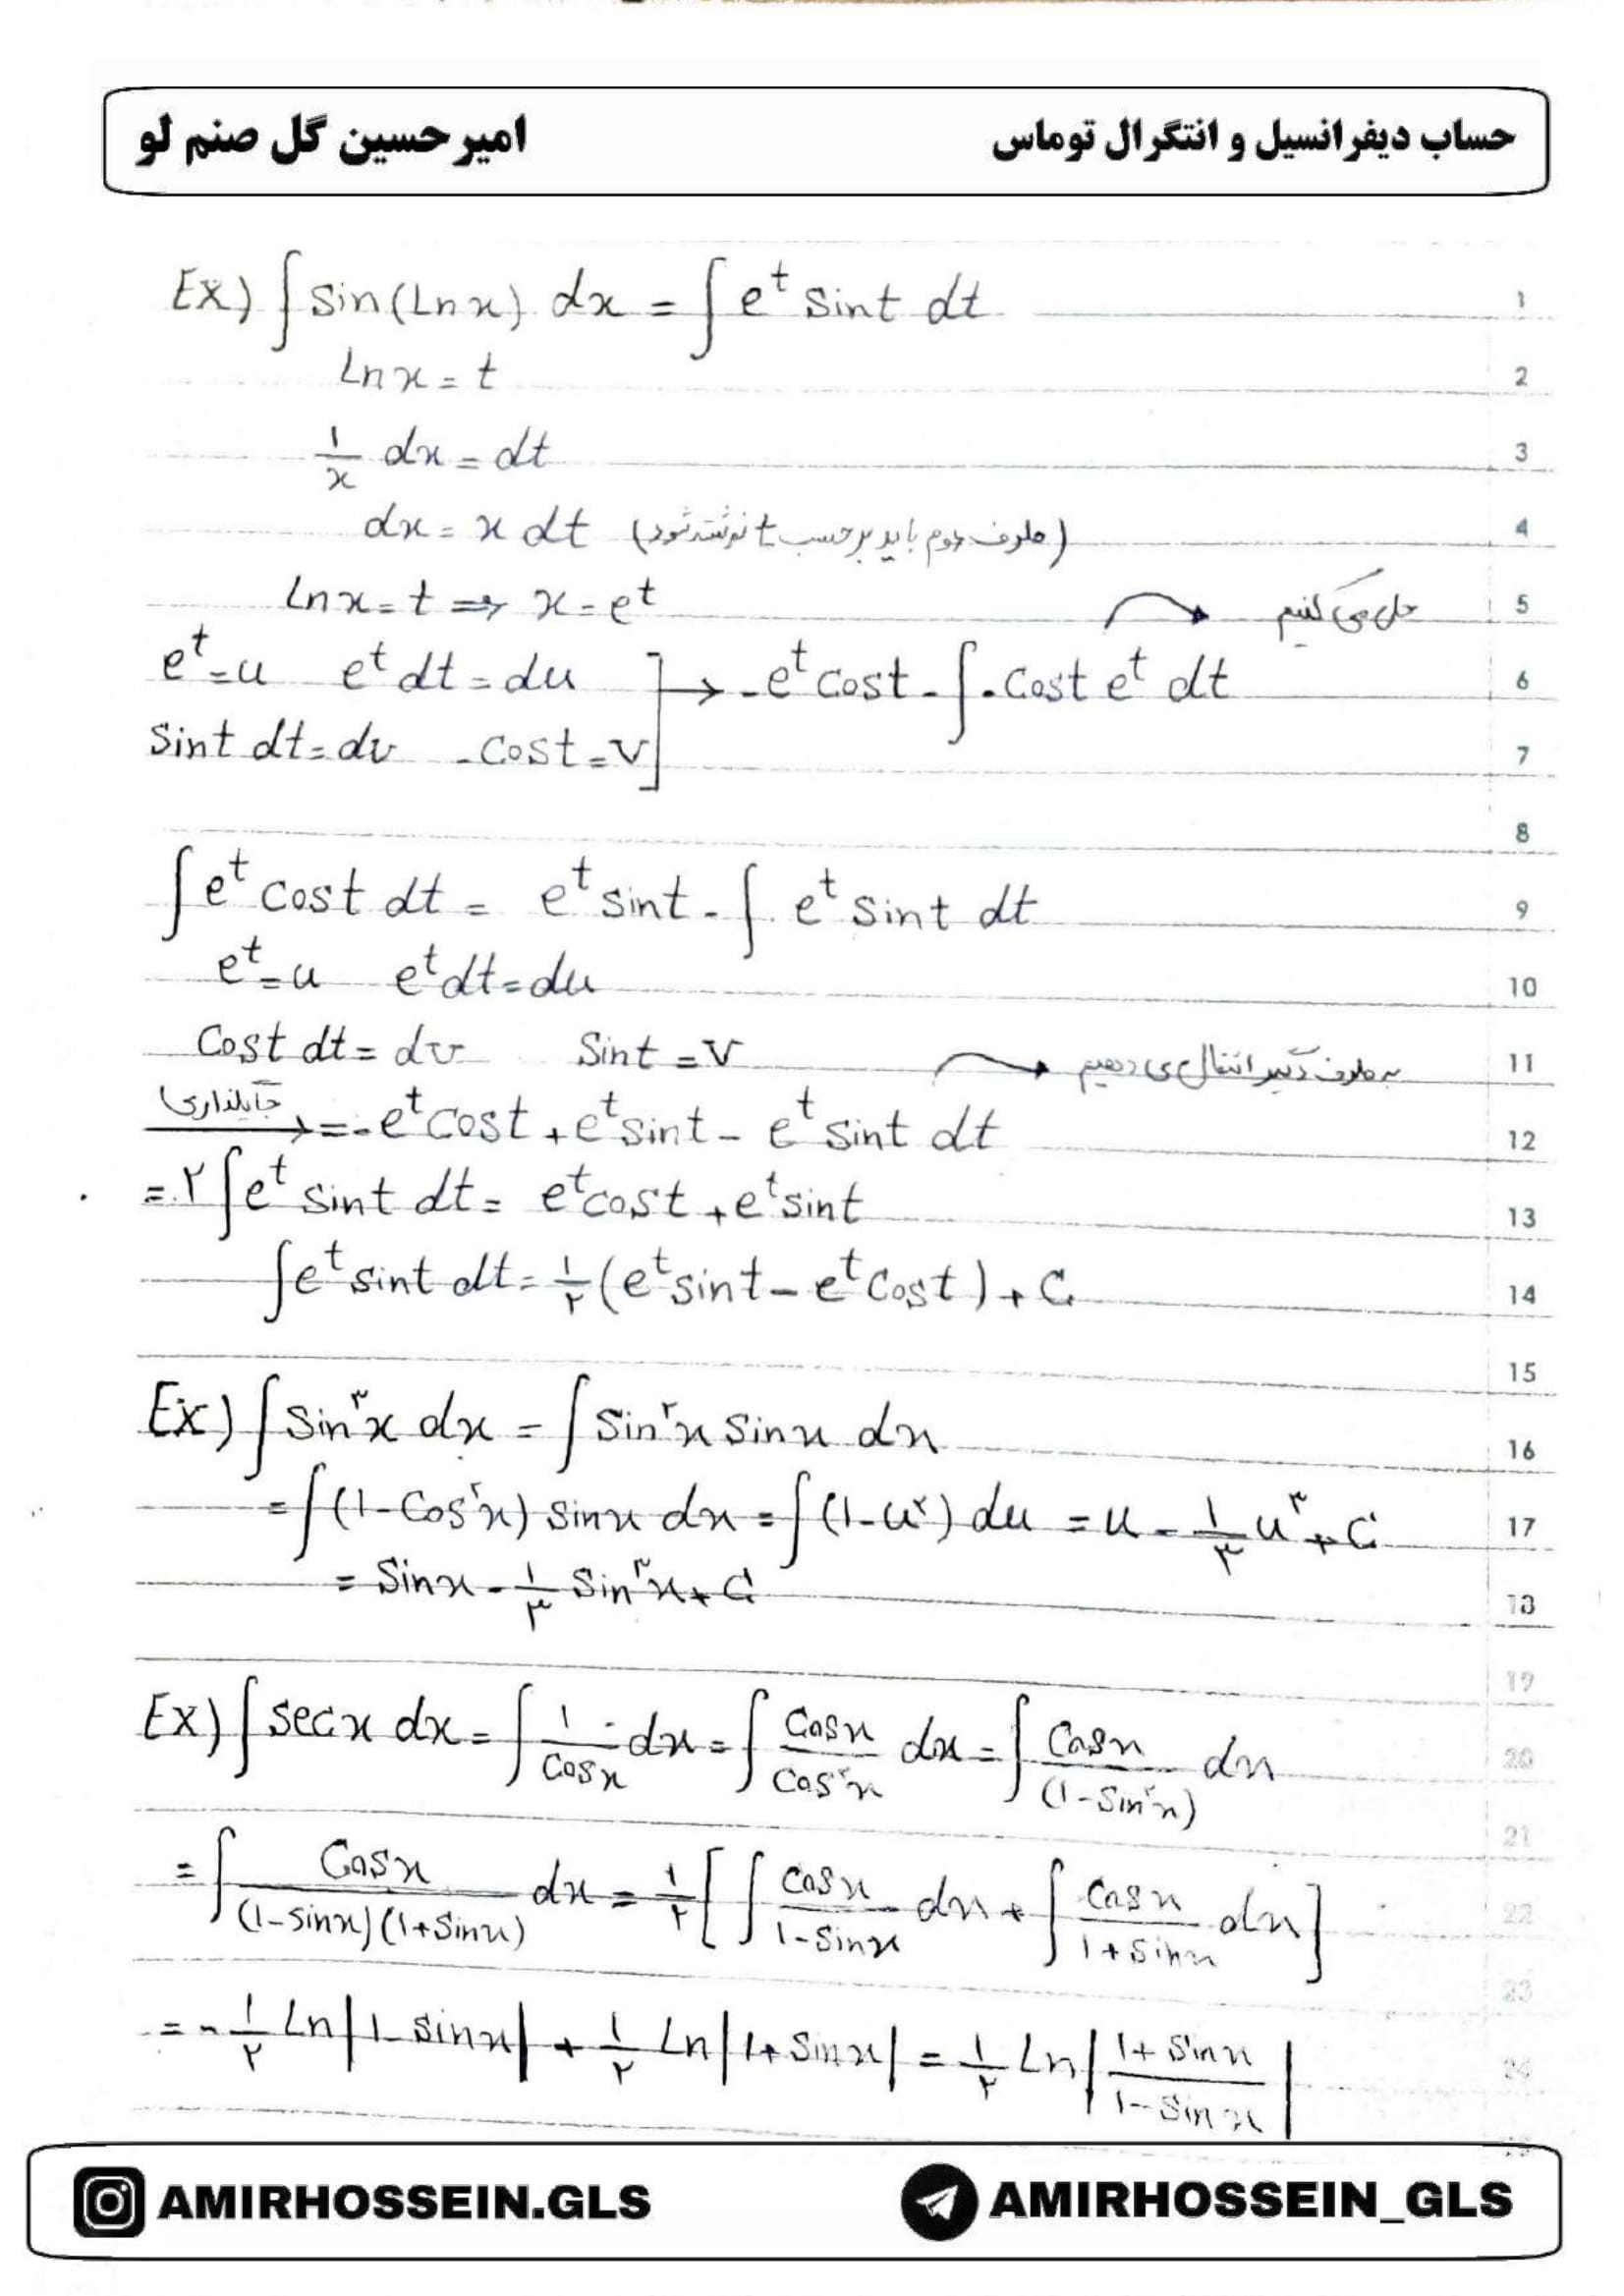 حساب دیفرانسیل و انتگرال توماس امیر حسین گل صنم لو
Ex) ∫ Sin(Ln x) dx = ∫ e^t Sint dt 1
Ln x = t 2
1/x dx = dt 3
dx = x dt (طرف دوم باید برحسب t نوشته شود) 4
Ln x = t ⇒ x = e^t حل می کنیم 5
e^t = u e^t dt = du → -e^t Cost - ∫ -Cost e^t dt 6
Sint dt = dv -Cost = v 7
8
∫ e^t Cost dt = e^t sint - ∫ e^t Sint dt 9
e^t = u e^t dt = du 10
Cost dt = dv Sint = v به طرف دیگر انتقال می دهیم 11
جایگذاری → = -e^t Cost + e^t sint - e^t Sint dt 12
= ۲ ∫ e^t Sint dt = e^t cost + e^t sint 13
∫ e^t sint dt = ۱/۲ (e^t sint - e^t Cost) + C 14
15
Ex) ∫ Sin^۳ x dx = ∫ Sin^۲ x Sin x dx 16
= ∫ (1 - Cos^۲ x) Sin x dx = ∫ (1 - u^۲) du = u - ۱/۳ u^۳ + C 17
= Sin x - ۱/۳ Sin^۳ x + C 18
19
Ex) ∫ Sec x dx = ∫ 1/Cos x dx = ∫ Cos x/Cos^۲ x dx = ∫ Cos x/(1 - Sin^۲ x) dx 20
21
= ∫ Cos x/(1 - Sin x)(1 + Sin x) dx = ۱/۲ [ ∫ Cos x/1 - Sin x dx + ∫ Cos x/1 + Sin x dx ] 22
23
= - ۱/۲ Ln|1 - Sin x| + ۱/۲ Ln|1 + Sin x| = ۱/۲ Ln|1 + Sin x/1 - Sin x| 24
AMIRHOSSEIN.GLS AMIRHOSSEIN_GLS